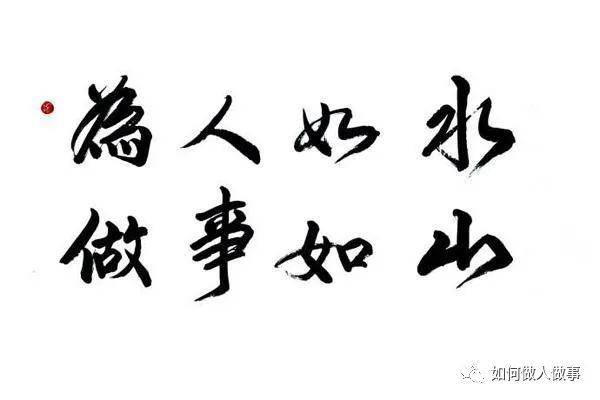 為人如水
做事如山
如何做人做事